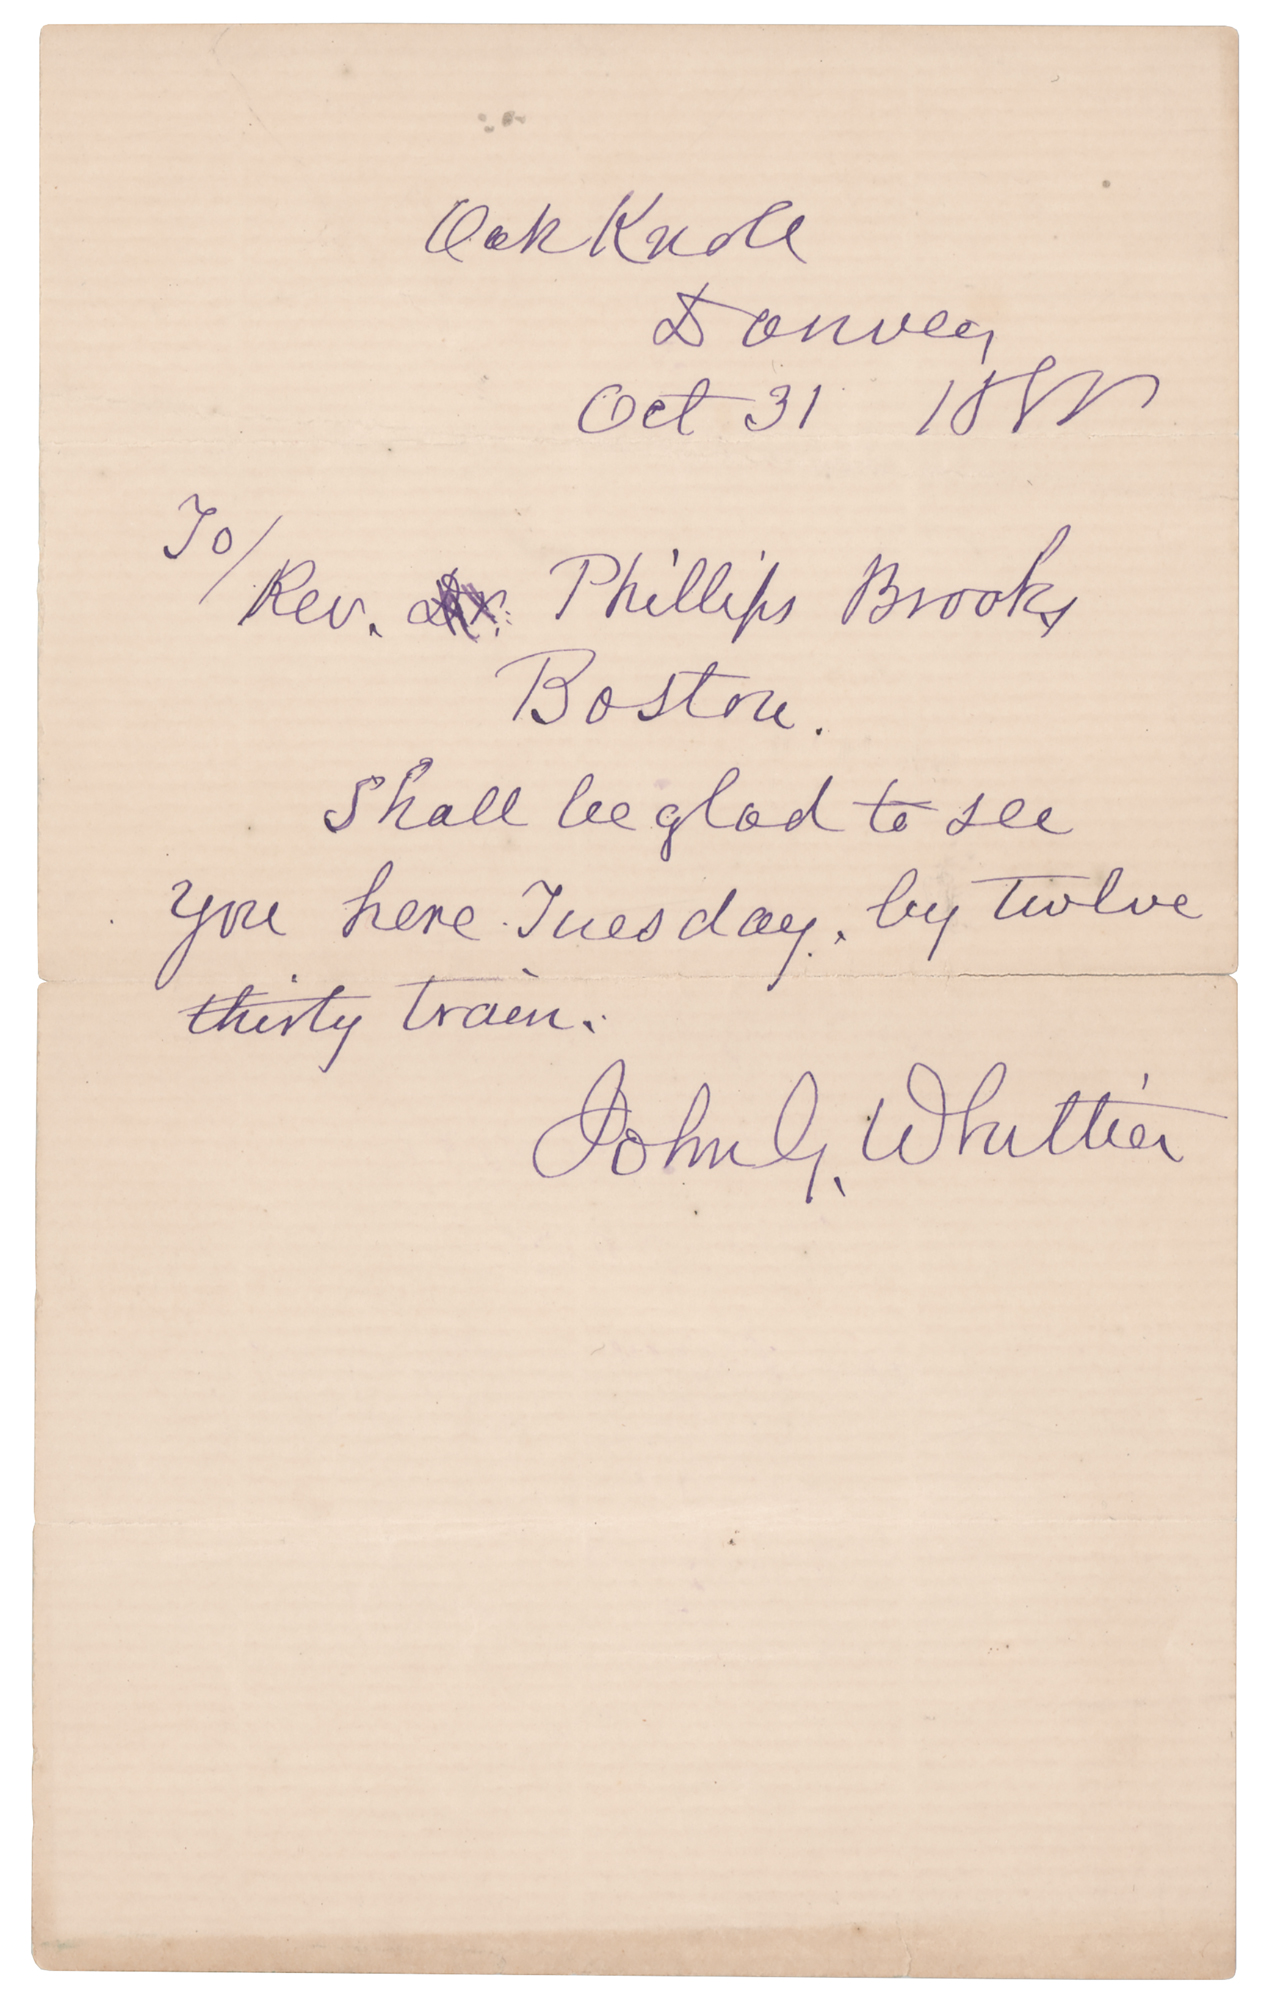 Oak Knoll
Danvers
Oct 31
To/
Rev. Dr. Phillips Brooks
Boston.
Shall be glad to see
you here Tuesday, by twelve
thirty train.
John G. Whittier